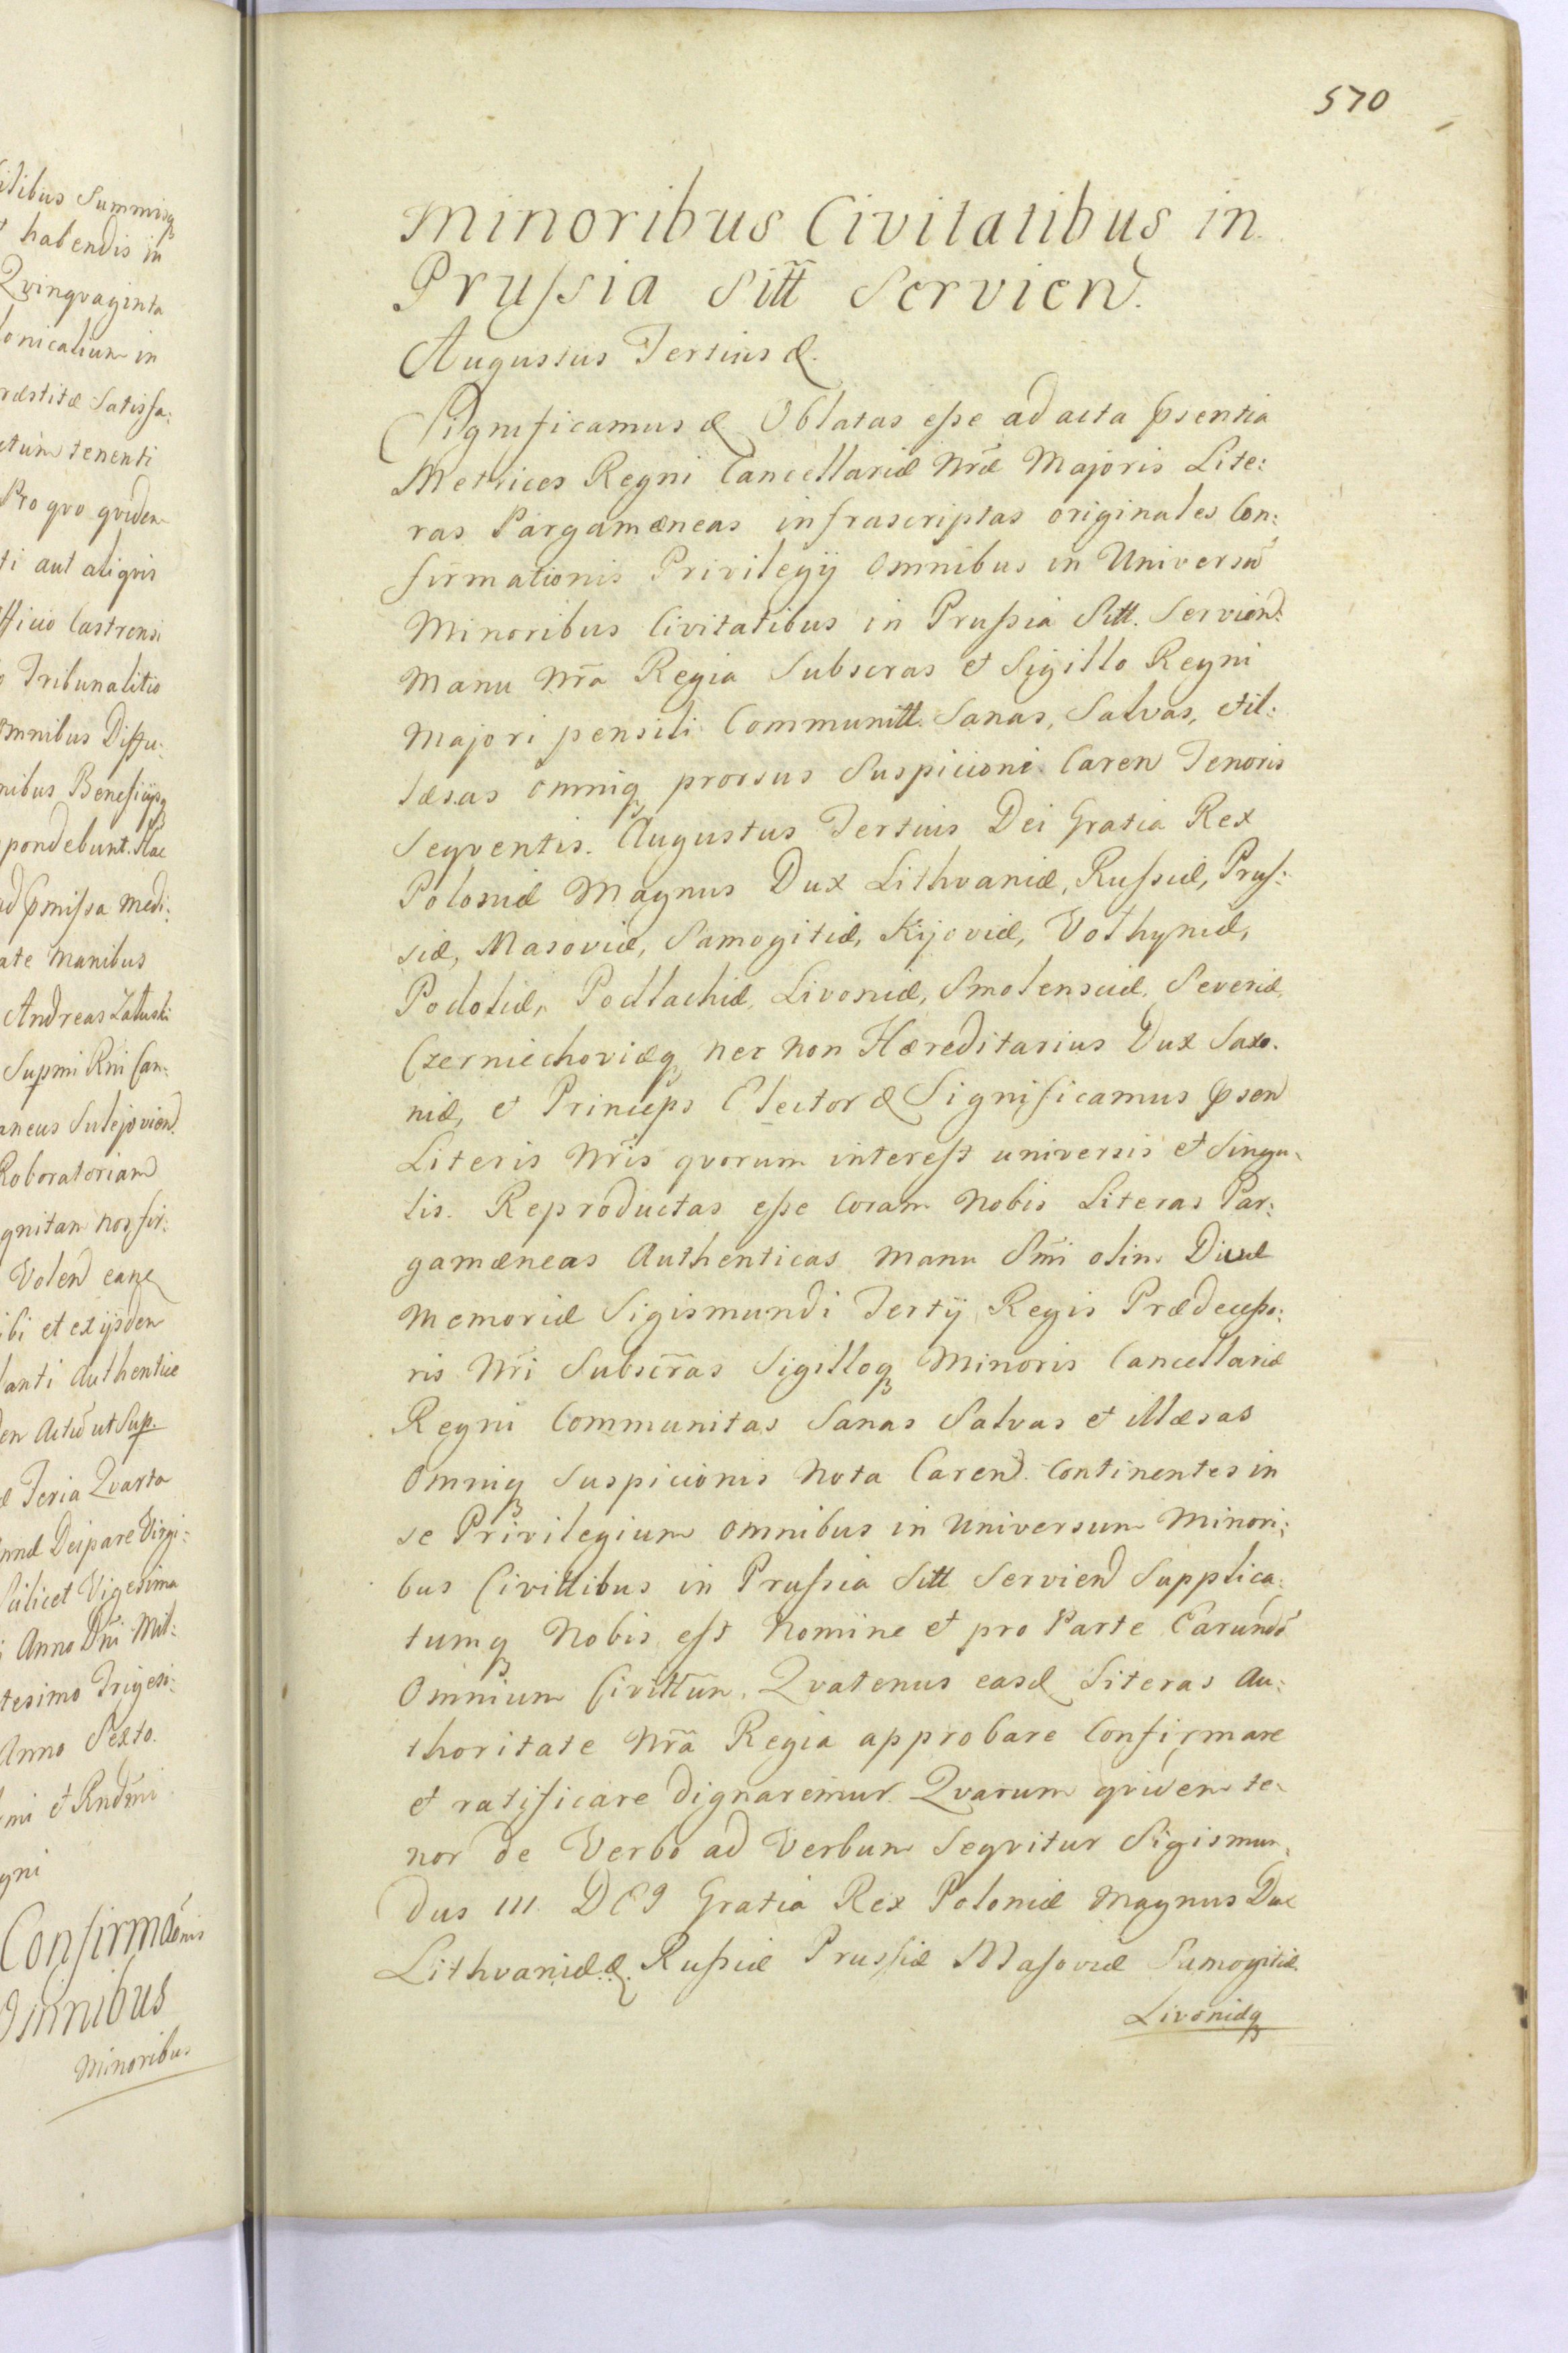 itibus Summisq
habendis in
Qvinqvaginta
onicalium in
ræstitæ Satisfa:
ctum tenenti
Pro qvo qvidem
ti aut aliqvis
fficio Castrensi
Tribunalitio
omnibus Diffu:
nibus Beneficijsq
pondebunt. Hac
ad pmissa medi:
ate Manibus
Andreas Załuski
Supmi Rni Can:
aneus Sulejovien.
Roboratoriam
gnitam nos fir:
Volen eanq
ibi et ex ijsdem
lanti Authentice
den Actu ut Sup.
æ Feria Qvarta
nnæ Deiparæ Virgi:
Scilicet Vigesima
Anno Dñi Mil:
tesimo Trigesi:
Anno Sexto.
mi et Rndmi
gni
Confirmãonis
Omnibus
Minoribus
570
Minoribus Civitatibus in
Prussia Sitt Servien.
Augustus Tertius &.
Significamus & Oblatas esse ad acta psentia
Metrices Regni Cancellariæ Nræ Majoris Lite:
ras Pargamæneas infrascriptas originales Con:
firmationis Privilegij Omnibus in Universũ
Minoribus Civitatibus in Prussia Sitt. Servien:
Manu Nrã Regia Subscras et Sigillo Regni
Majori pensili Communitt. Sanas, Salvas, et il:
læsas omniq prorsus Suspicioni Caren Tenoris
Seqventis. Augustus Tertius Dei Gratia Rex
Poloniæ Magnus Dux Lithvaniæ, Russiæ, Prus:
siæ, Masoviæ, Samogitiæ, Kijoviæ, Volhyniæ,
Podoliæ, Podlachiæ, Livoniæ, Smolensciæ, Severiæ,
Czerniechoviæq, nec non Hæreditarius Dux Saxo:
niæ, et Princeps Elector & Significamus psen
Literis Nris qvorum interest universis et Singu:
lis. Reproductas esse Coram Nobis Literas Par:
gamæneas Authenticas Manu Smi olim Divæ
Memoriæ Sigismundi Tertij Regis Prædecesso:
ris Nri Subscras Sigilloq Minoris Cancellariæ
Regni Communitas Sanas Salvas et illæsas
Omniq Suspicionis Nota Caren. Continentes in
se Privilegium Omnibus in Universum Minori:
bus Civittibus in Prussia Sitt Servien Supplica:
tumq Nobis est Nomine et pro Parte Earundẽ
Omnium Civittũm. Qvatenus easd Literas Au:
thoritate Nrã Regia approbare Confirmare
et ratificare dignaremur. Qvarum qvidem te:
nor de Verbo ad Verbum Seqvitur Sigismun:
dus III DEI Gratia Rex Poloniæ Magnus Dux
Lithvaniæ &. Russiæ Prussiæ Masoviæ Samogitiæ
Livoniæq